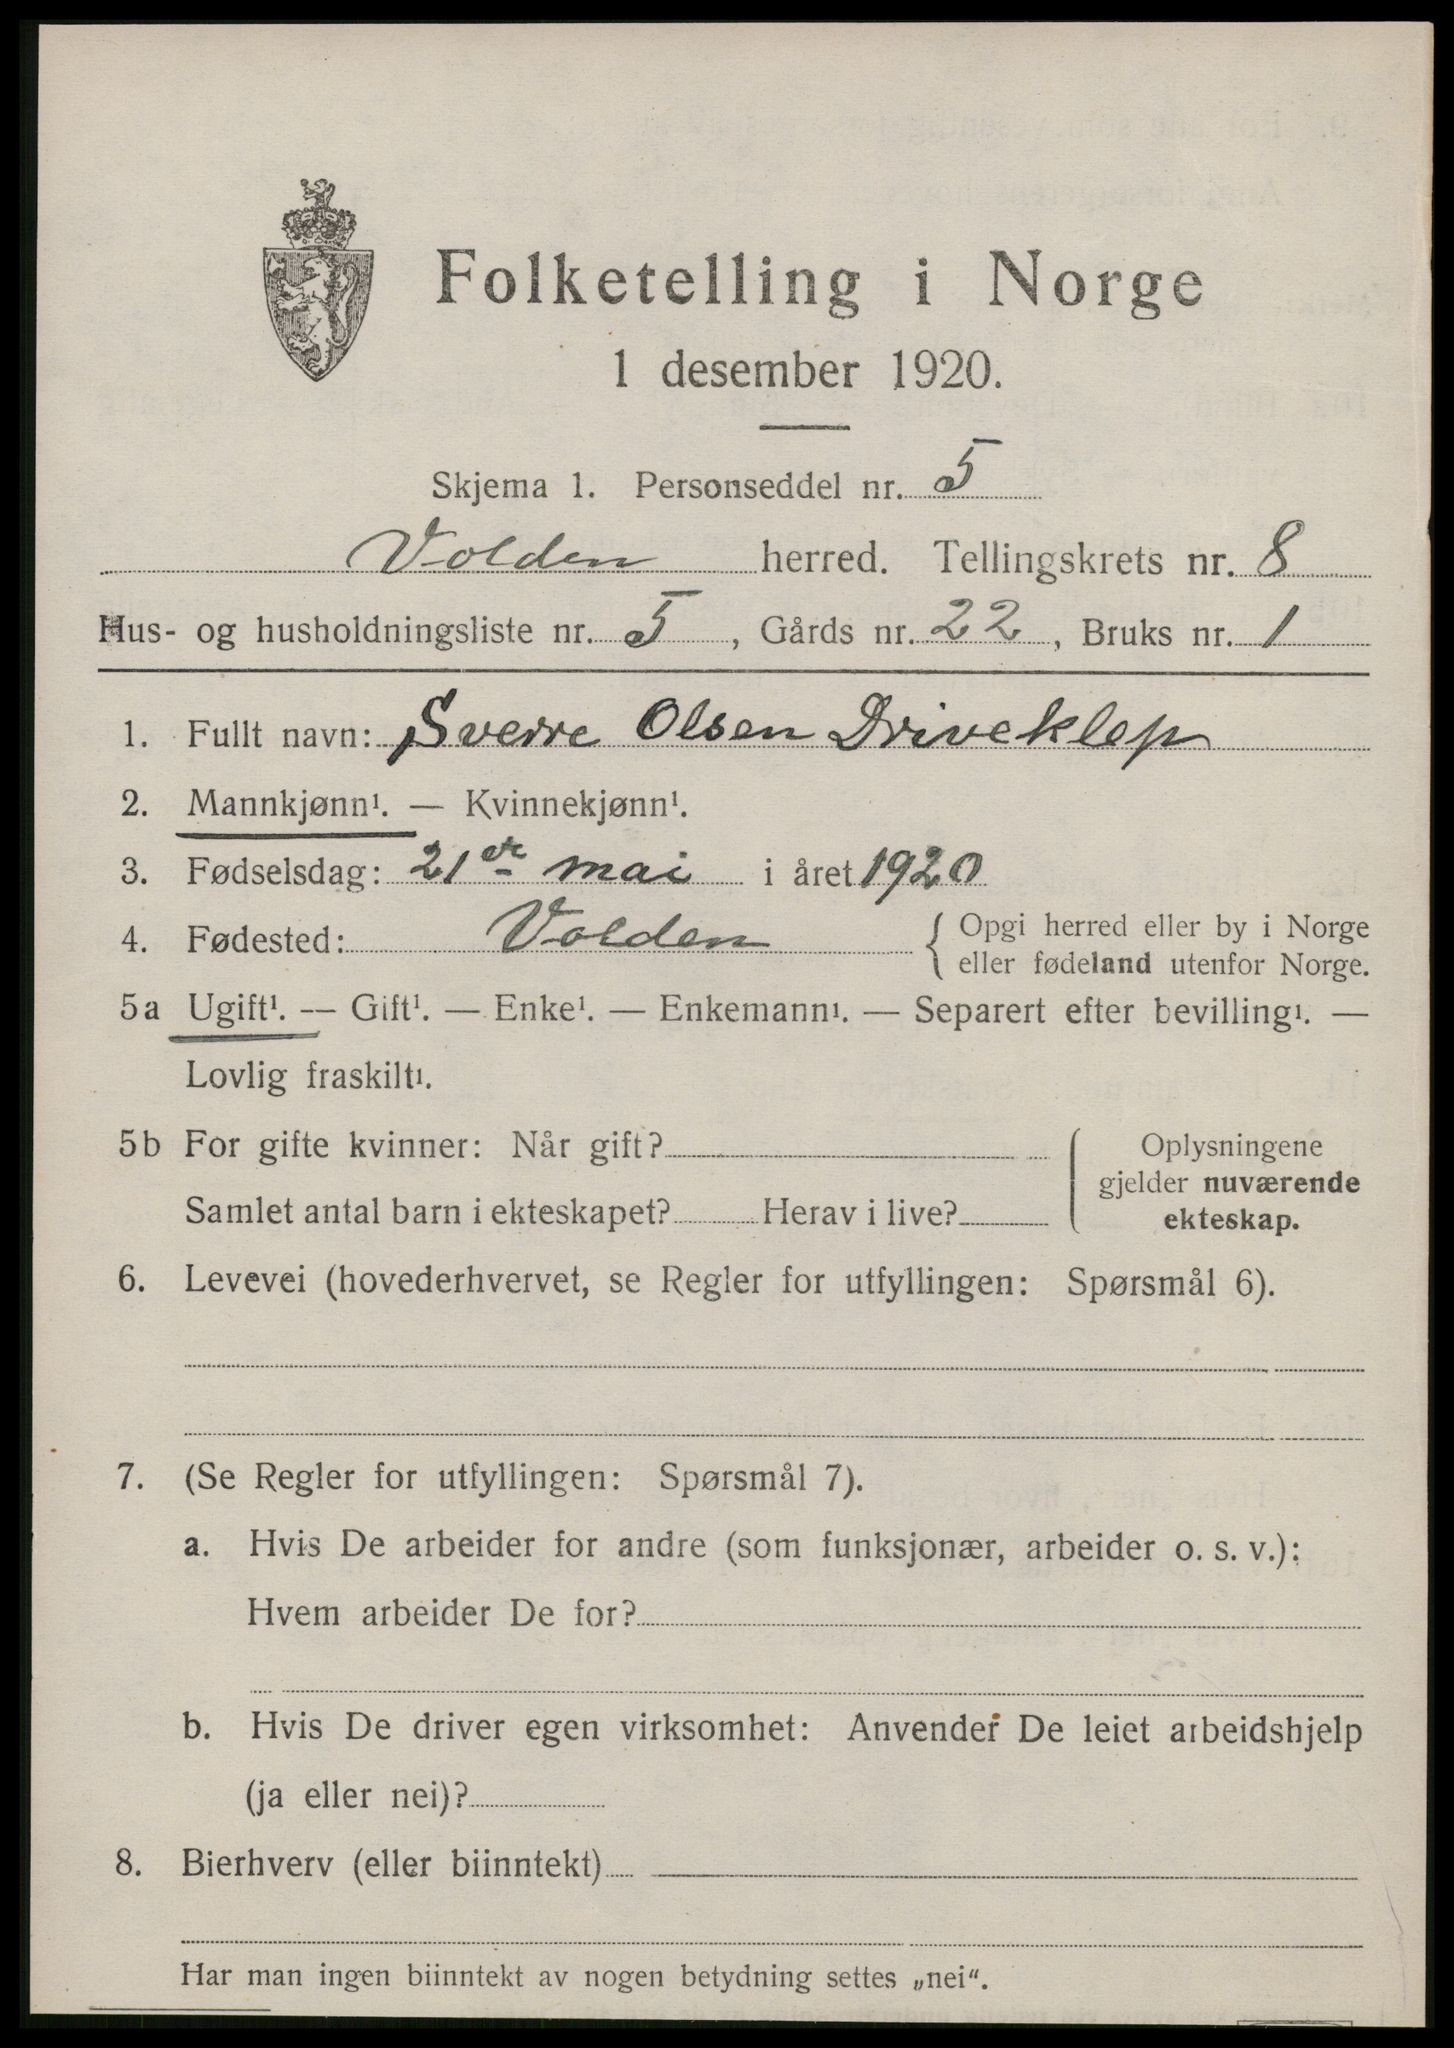 Folketelling i Norge
1 desember 1920.
Skjema 1. Personseddel nr. 5
Volden herred. Tellingskrets nr. 8
Hus- og husholdningsliste nr. 5, Gårds nr. 22, Bruks nr. 1
1. Fullt navn: Sverre Olsen Driveklep
2. Mannkjønn¹. — Kvinnekjønn¹.
3. Fødselsdag: 21de mai i året 1920
4. Fødested: Volden { Opgi herred eller by i Norge
eller fødeland utenfor Norge.
5a Ugift¹. — Gift¹. — Enke¹. — Enkemann¹. — Separert efter bevilling¹. —
Lovlig fraskilt¹.
5b For gifte kvinner: Når gift? Oplysningene
gjelder nuværende
Samlet antal barn i ekteskapet? Herav i live? ekteskap.
6. Levevei (hovederhvervet, se Regler for utfyllingen: Spørsmål 6).
7. (Se Regler for utfyllingen: Spørsmål 7).
a. Hvis De arbeider for andre (som funksjonær, arbeider o. s. v.):
Hvem arbeider De for?
b. Hvis De driver egen virksomhet: Anvender De leiet arbeidshjelp
(ja eller nei)?
8. Bierhverv (eller biinntekt)
Har man ingen biinntekt av nogen betydning settes „nei“.